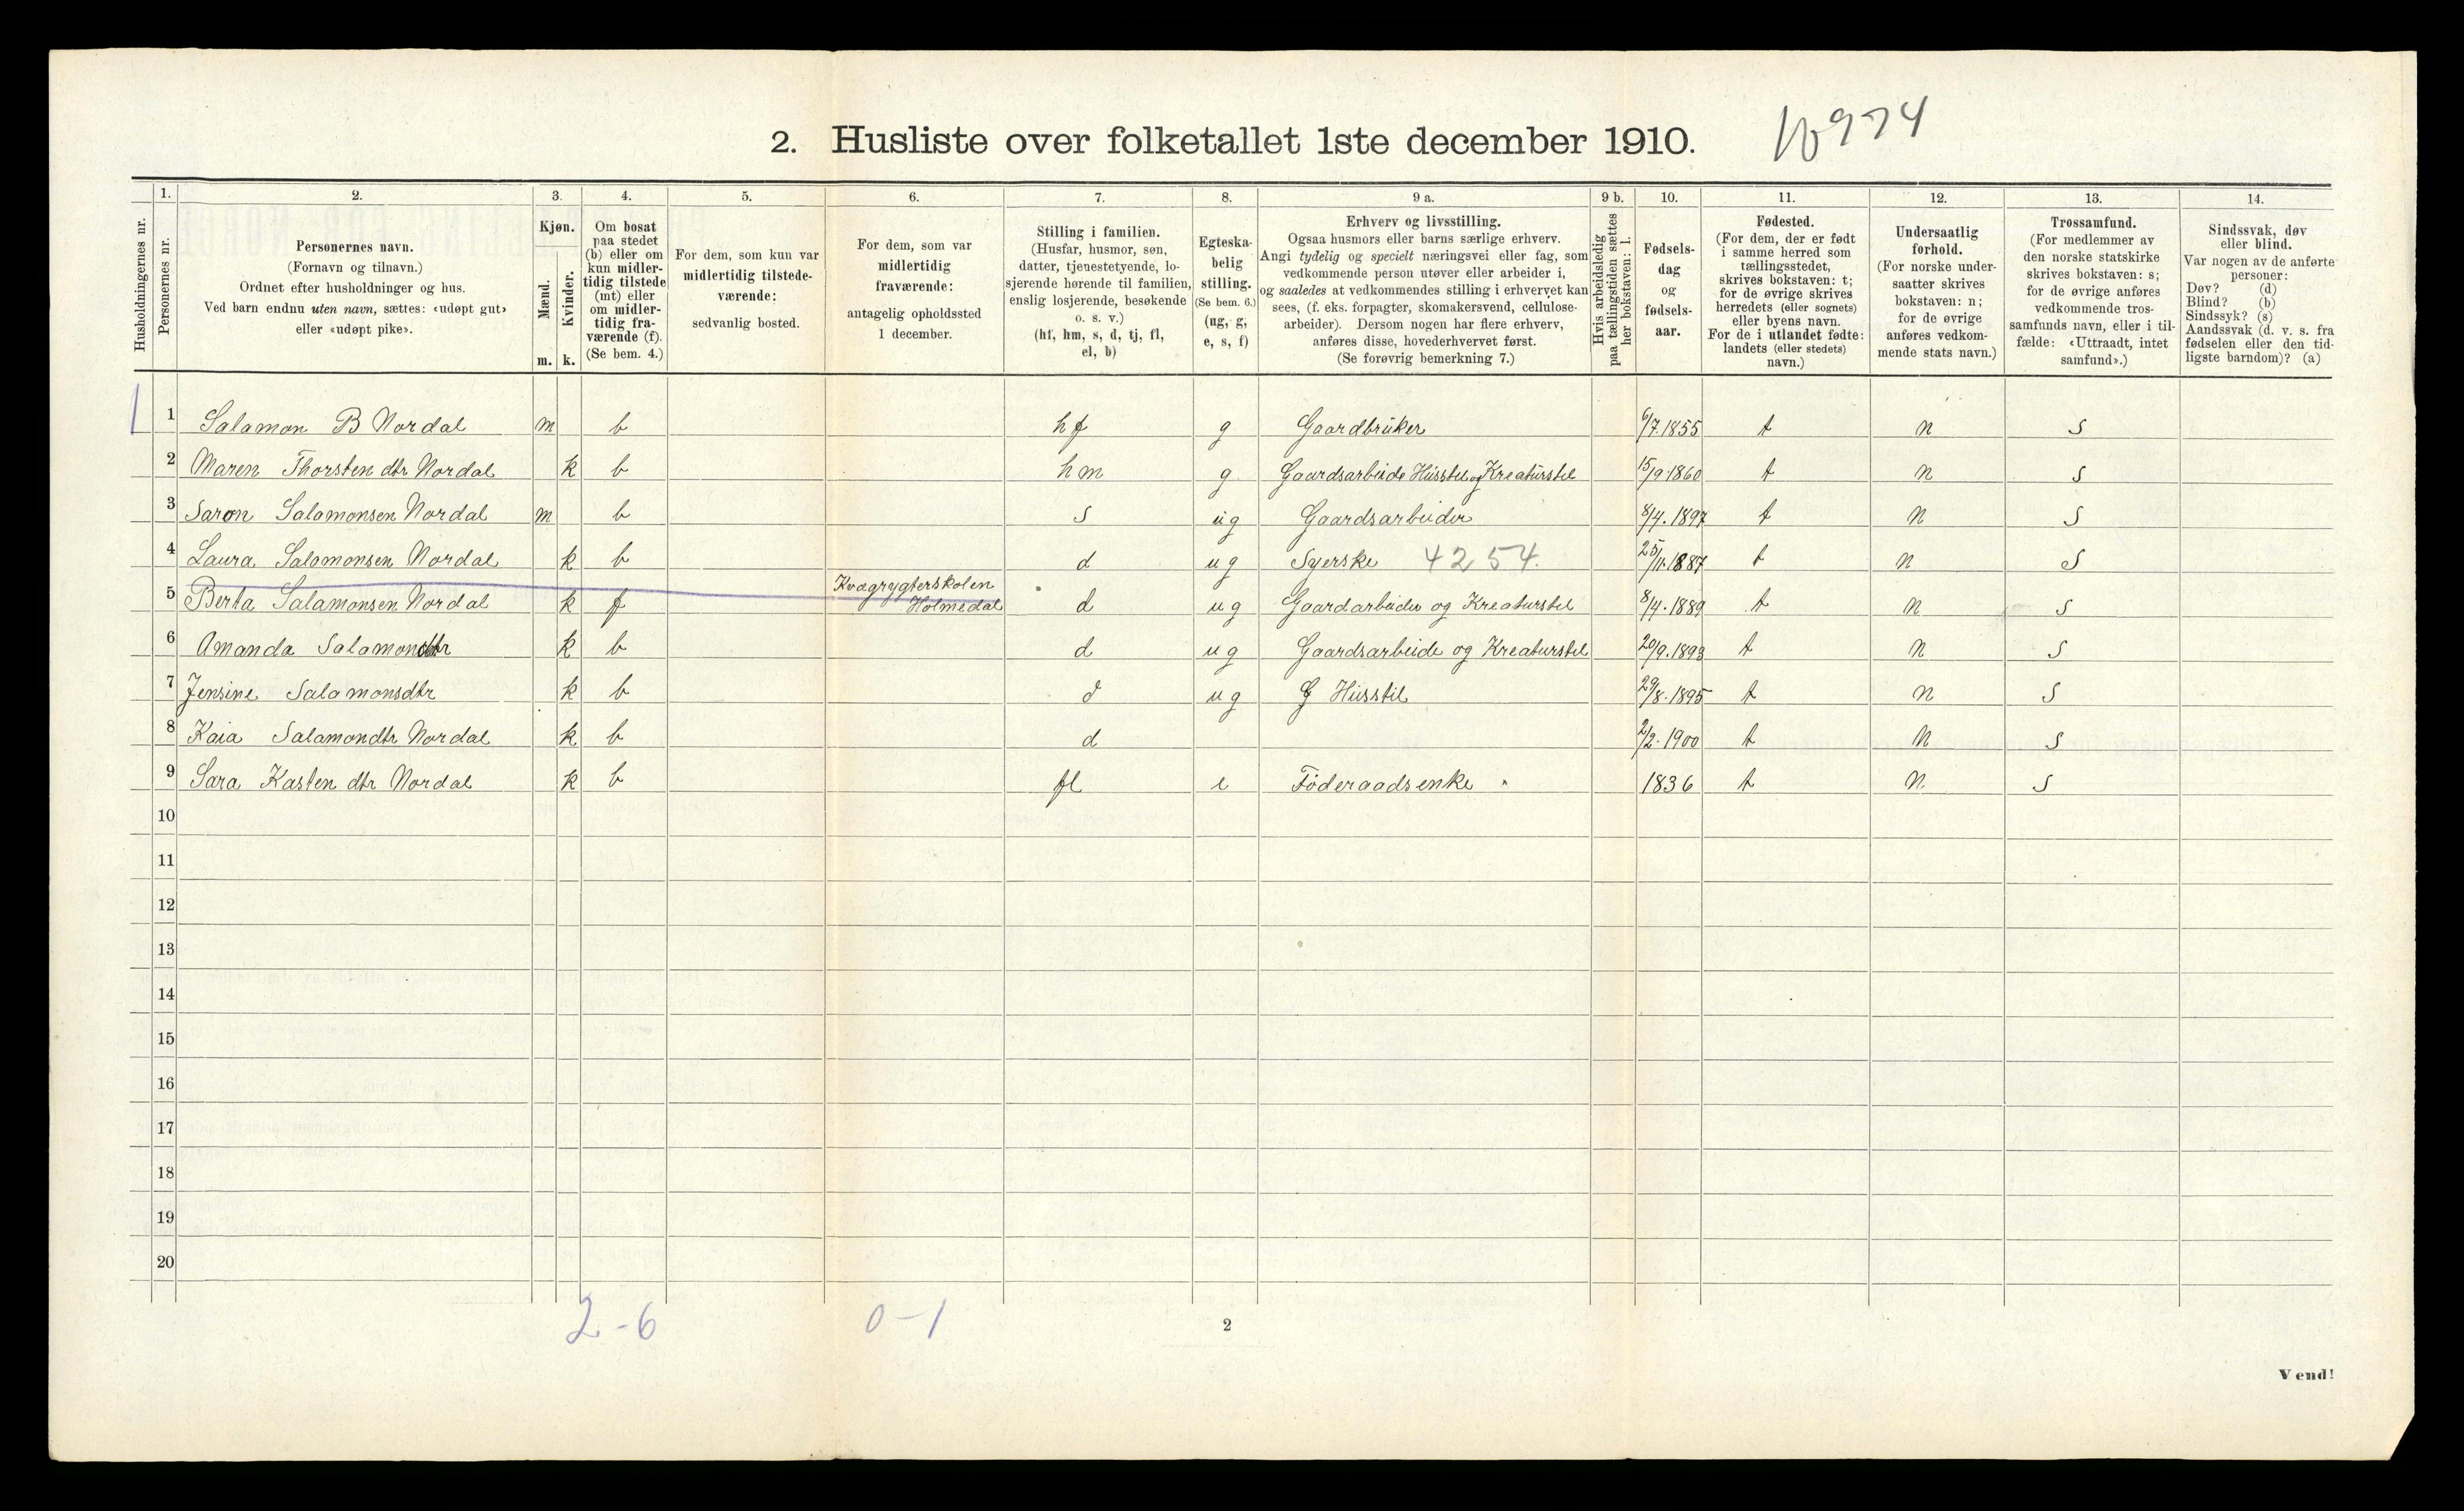 2. Husliste over folketallet 1ste december 1910.
Husholdningernes nr.
1.
Personernes nr.
2.
Personernes navn.
(Fornavn og tilnavn.)
Ordnet efter husholdninger og hus.
Ved barn endnu uten navn, sættes: «udøpt gut»
eller «udøpt pike».
3.
Kjøn.
Mænd.
Kvinder.
m. k.
4.
Om bosat
paa stedet
(b) eller om
kun midler-
tidig tilstede
(mt) eller
om midler-
tidig fra-
værende (f).
(Se bem. 4.)
5.
For dem, som kun var
midlertidig tilstede-
værende:
sedvanlig bosted.
6.
For dem, som var
midlertidig
fraværende:
antagelig opholdssted
1 december.
7.
Stilling i familien.
(Husfar, husmor, søn,
datter, tjenestetyende, lo-
sjerende hørende til familien,
enslig losjerende, besøkende
o. s. v.)
(hf, hm, s, d, tj, fl,
el, b)
8.
Egteska-
belig
stilling.
(Se bem. 6.)
(ug, g,
e, s, f)
9 a.
Erhverv og livsstilling.
Ogsaa husmors eller barns særlige erhverv.
Angi tydelig og specielt næringsvei eller fag, som
vedkommende person utøver eller arbeider i,
og saaledes at vedkommendes stilling i erhvervet kan
sees, (f. eks. forpagter, skomakersvend, cellulose-
arbeider). Dersom nogen har flere erhverv,
anføres disse, hovederhvervet først.
(Se forøvrig bemerkning 7.)
9 b.
Hvis arbeidsledig
paa tællingstiden sættes
her bokstaven: l.
10.
Fødsels-
dag
og
fødsels-
aar.
11.
Fødested.
(For dem, der er født
i samme herred som
tællingsstedet,
skrives bokstaven: t;
for de øvrige skrives
herredets (eller sognets)
eller byens navn.
For de i utlandet fødte:
landets (eller stedets)
navn.)
12.
Undersaatlig
forhold.
(For norske under-
saatter skrives
bokstaven: n;
for de øvrige
anføres vedkom-
mende stats navn.)
13.
Trossamfund.
(For medlemmer av
den norske statskirke
skrives bokstaven: s;
for de øvrige anføres
vedkommende tros-
samfunds navn, eller i til-
fælde: «Uttraadt, intet
samfund».)
14.
Sindssvak, døv
eller blind.
Var nogen av de anførte
personer:
Døv? (d)
Blind? (b)
Sindssyk? (s)
Aandssvak (d. v. s. fra
fødselen eller den tid-
ligste barndom)? (a)
1 1 Salamon B Nordal m b hf g Gaardbruker 6/7.1855 t n s
2 Maren Thorsten dtr Nordal k b hm g Gaardsarbeide Husstel og Kreaturstel 15/9.1860 t n s
3 Saron Salamonsen Nordal m b s ug Gaardsarbeider 8/4.1897 t n s
4 Laura Salomonsen Nordal k b d ug Syerske 4254. 25/11.1887 t n s
5 Berta Salamonsen Nordal k f Kvægrygterskolen Holmedal d ug Gaardarbeider og Kreaturstel 8/4.1889 t n s
6 Amanda Salamondtr k b d ug Gaardsarbeide og Kreaturstel 20/9.1893 t n s
7 Jensine Salamonsdtr k b d ug G Husstil 29/8.1895 t n s
8 Kaia Salamondtr Nordal k b d 2/2.1900 t n s
9 Sara Kasten dtr Nordal k b fl e Føderaadsenke 1836 t n s
10
11
12
13
14
15
16
17
18
19
20
2-6 0-1
2
Vend!